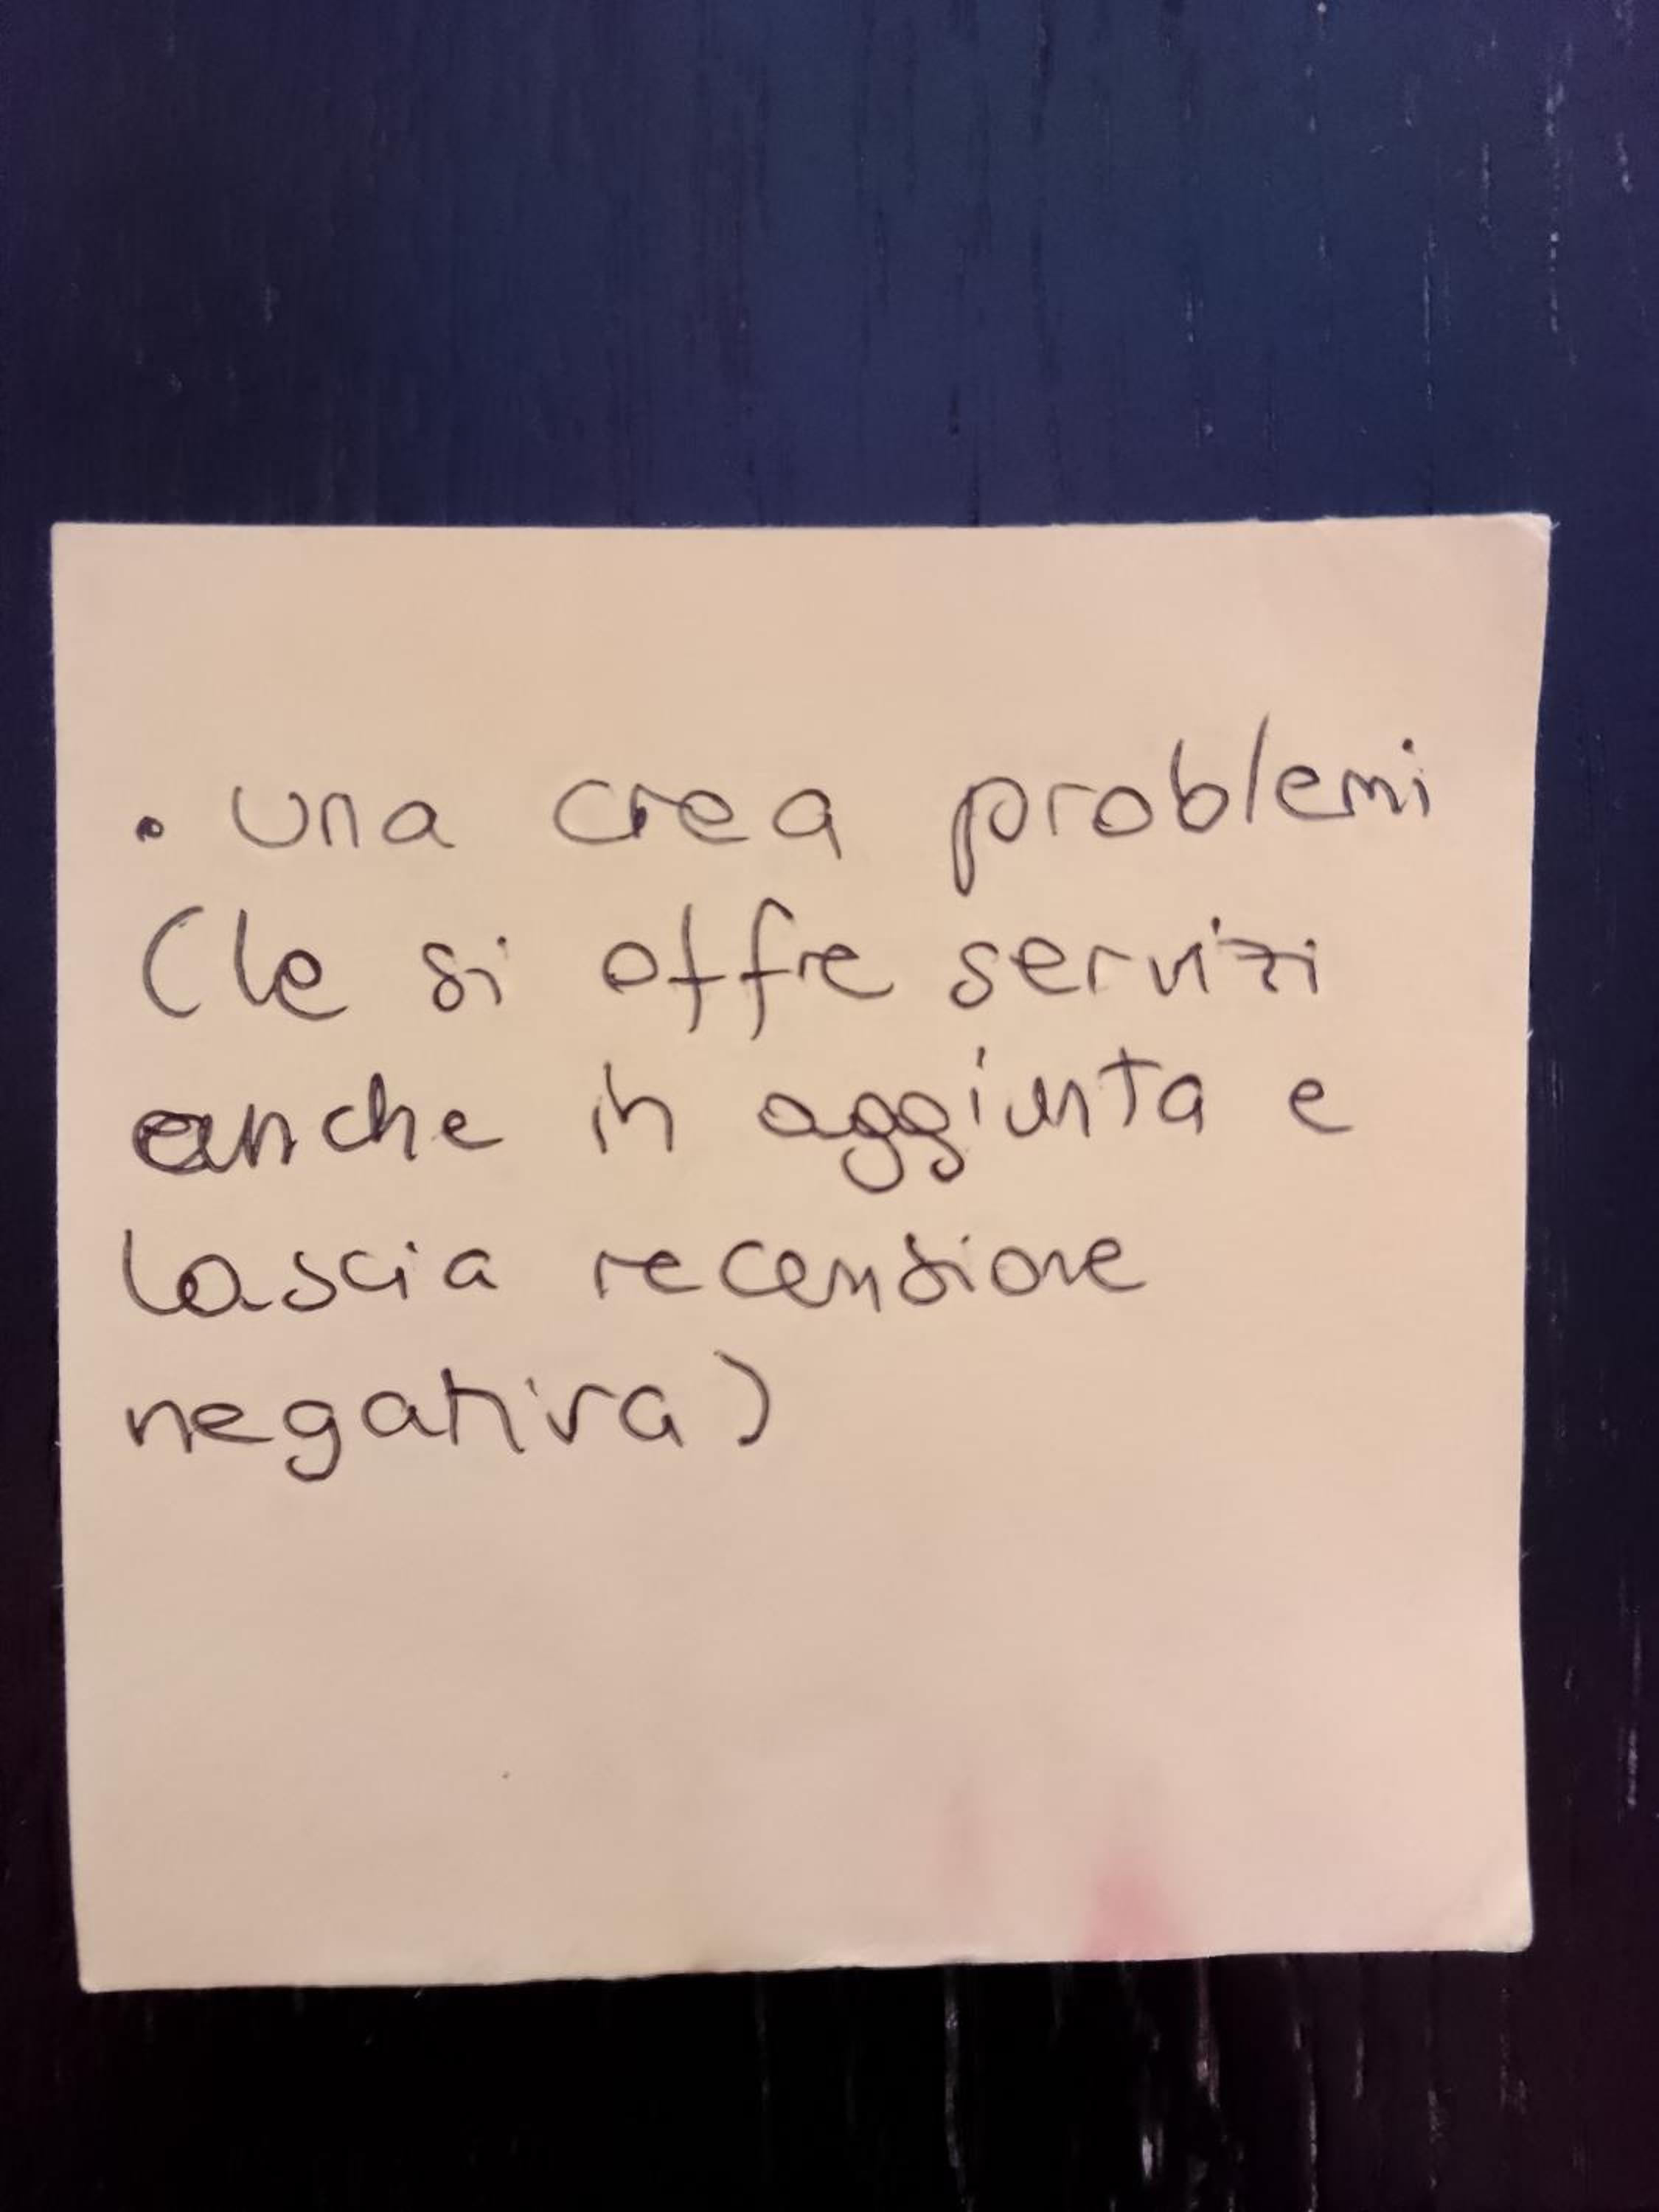 • una crea problemi
(le si offre servizi
anche in aggiunta e
lascia recensione
negativa)